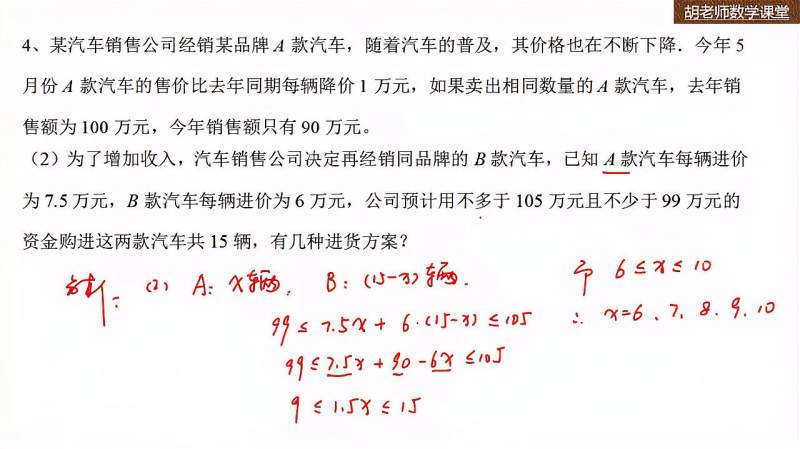 胡老师数学课堂
4、某汽车销售公司经销某品牌 A 款汽车，随着汽车的普及，其价格也在不断下降．今年 5
月份 A 款汽车的售价比去年同期每辆降价 1 万元，如果卖出相同数量的 A 款汽车，去年销
售额为 100 万元，今年销售额只有 90 万元。
（2）为了增加收入，汽车销售公司决定再经销同品牌的 B 款汽车，已知 A 款汽车每辆进价
为 7.5 万元，B 款汽车每辆进价为 6 万元，公司预计用不多于 105 万元且不少于 99 万元的
资金购进这两款汽车共 15 辆，有几种进货方案？
分析： (2) A：x辆， B：(15-x)辆.
99 ≤ 7.5x + 6·(15-x) ≤ 105
99 ≤ 7.5x + 90 - 6x ≤ 105
9 ≤ 1.5x ≤ 15
即 6 ≤ x ≤ 10
∴ x=6、7、8、9、10